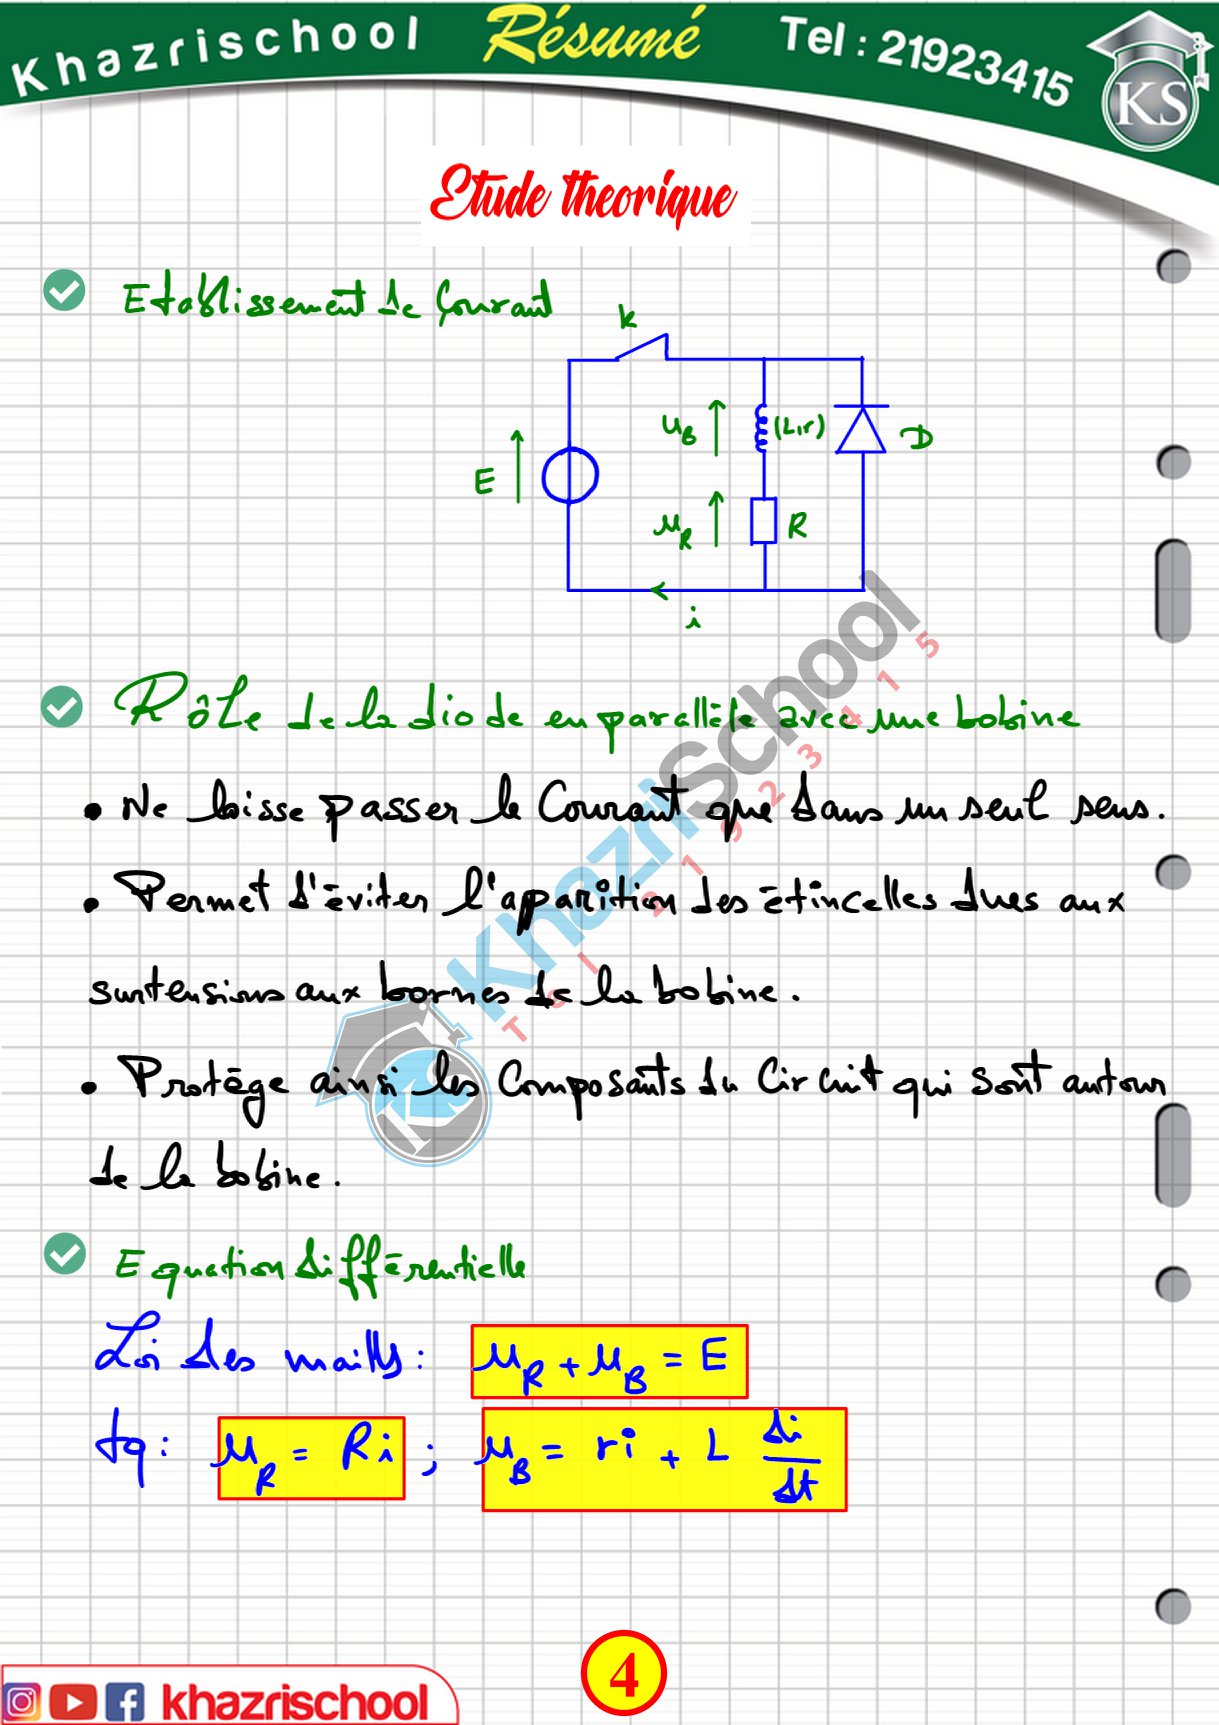 Khazrischool Résumé Tel : 21923415
KS
Etude theorique
Etablissement de Courant
K
E
uB
(L,r)
D
uR
R
i
Rôle de la diode en parallèle avec une bobine
• Ne laisse passer le Courant que dans un seul sens.
• Permet d'éviter l'apparition des étincelles dues aux
surtensions aux bornes de la bobine.
• Protège ainsi les Composants du Circuit qui sont autour
de la bobine.
KhazriSchool
Tel 21923415
KS
Equation différentielle
Loi des mailles: uR + uB = E
tq: uR = Ri ; uB = ri + L di/dt
4
khazrischool